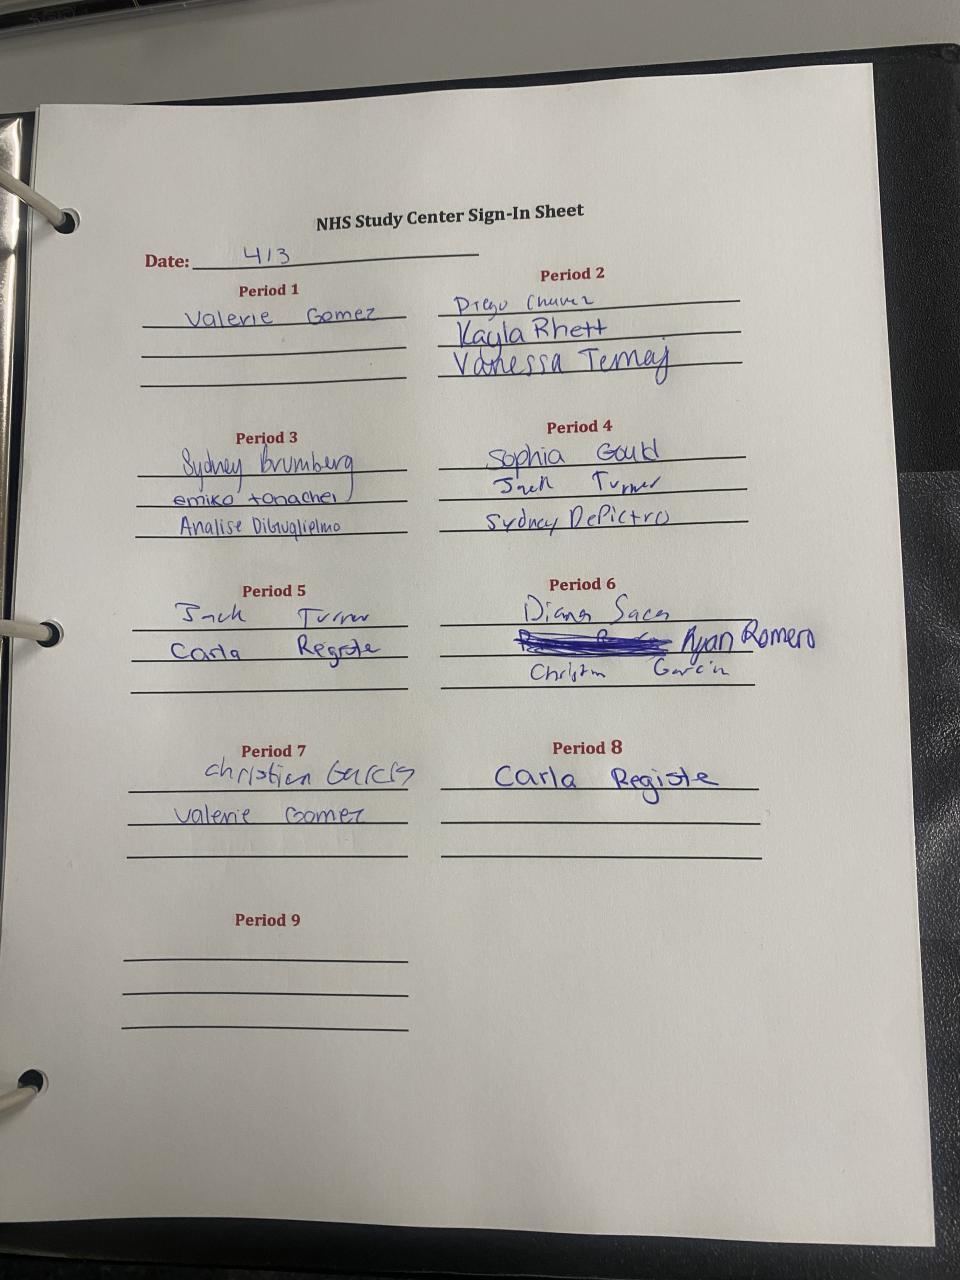 NHS Study Center Sign-In Sheet
Date: 4/3
Period 1
Valerie Gomez
Period 2
Diego Chavez
Kayla Rhett
Vanessa Temaj
Period 3
Sydney Brumberg
emiko tonachei
Analise DiGuglielmo
Period 4
Sophia Gould
Jack Turner
Sydney DePietro
Period 5
Jack Turner
Carla Registe
Period 6
Diana
Ryan Romero
Christian Garcia
Period 7
Christian Garcia
Valerie Gomez
Period 8
Carla Registe
Period 9